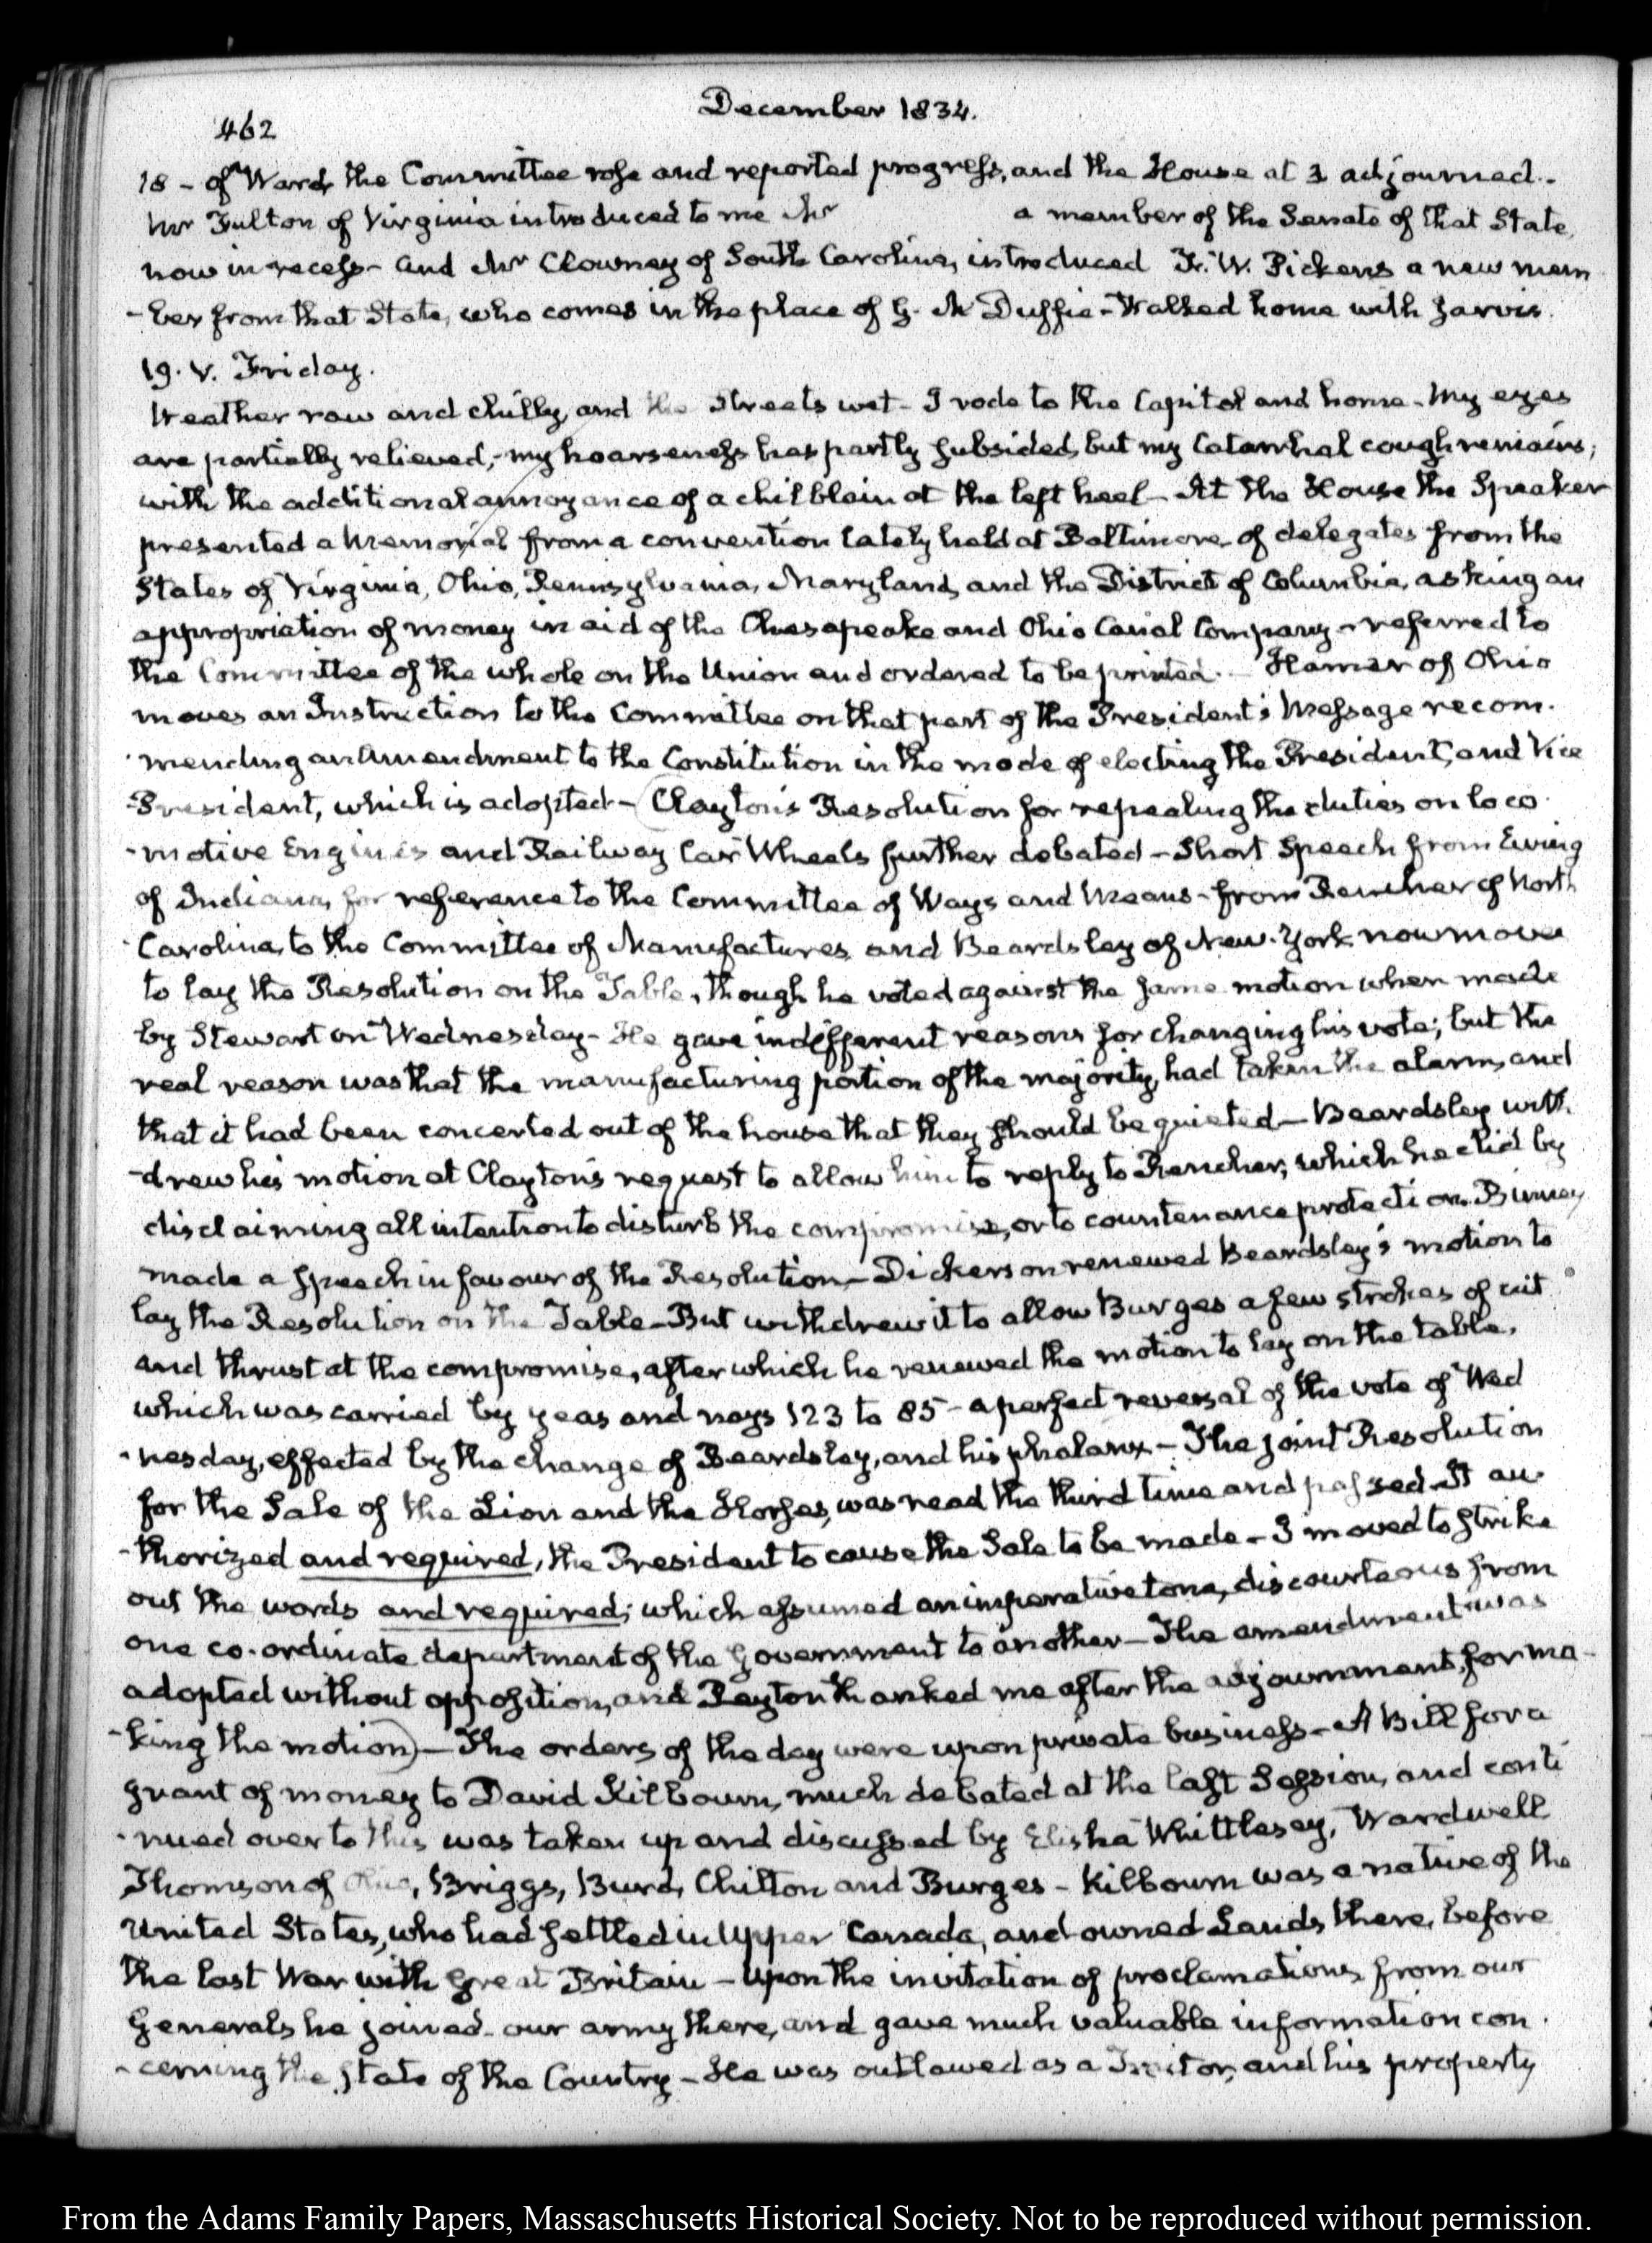 December 1834.
462
18 - of Ward, the Committee rose and reported progress, and the House at 3 adjourned.-
Mr Fulton of Virginia introduced to me Mr a member of the Senate of that State,
now in recess - and Mr Clowney of South Carolina, introduced F. W. Pickens a new mem
-ber from that State, who comes in the place of G. McDuffie - Walked home with Jarvis.
19. V. Friday.
Weather raw and chilly, and the Streets wet - I rode to the Capitol and home - My eyes
are partially relieved, - my hoarseness has partly subsided, but my Catarrhal cough remains;
with the additional annoyance of a chilblain at the left heel - At the House the Speaker
presented a Memorial from a convention lately held at Baltimore, of delegates from the
States of Virginia, Ohio, Pennsylvania, Maryland, and the District of Columbia, asking an
appropriation of money in aid of the Chesapeake and Ohio Canal Company - referred to
the Committee of the whole on the Union and ordered to be printed. - Hamer of Ohio
moves an Instruction to the Committee on that part of the President's Message recom-
-mending an Amendment to the Constitution in the mode of electing the President, and Vice
-President, which is adopted - (Clayton's Resolution for repealing the duties on loco-
-motive Engines and Railway Car Wheels further debated - Short Speech from Ewing
of Indiana, for reference to the Committee of Ways and Means - from Rencher of North
-Carolina, to the Committee of Manufactures, and Beardsley of New-York now moves
to lay the Resolution on the Table, though he voted against the same motion when made
by Stewart on Wednesday - He gave indifferent reasons for changing his vote; but the
real reason was that the manufacturing portion of the majority, had taken the alarm, and
that it had been concerted out of the house that they should be quieted - Beardsley with
-drew his motion at Clayton's request to allow him to reply to Rencher, which he did by
disclaiming all intention to disturb the compromise, or to countenance protection. Binney
made a speech in favour of the Resolution - Dickerson renewed Beardsley's motion to
lay the Resolution on the Table - But withdrew it to allow Burges a few strokes of cut
and thrust at the compromise, after which he renewed the motion to lay on the table,
which was carried by yeas and nays 123 to 85 - a perfect reversal of the vote of Wed
-nesday, effected by the change of Beardsley, and his phalanx - The joint Resolution
for the Sale of the Lion and the Horses, was read the third time and passed - It au-
-thorized and required, the President to cause the Sale to be made - I moved to strike
out the words and required; which assumed an imperative tone, discourteous from
one co-ordinate department of the Government to another - The amendment was
adopted without opposition, and Peyton thanked me after the adjournment, for ma-
-king the motion) - The orders of the day were upon private business - A Bill for a
grant of money to David Kilbourn, much debated at the last Session, and conti
-nued over to this was taken up and discussed by Elisha Whittlesey, Wardwell
Thomson of Ohio, Briggs, Burd, Chilton and Burges - Kilbourn was a native of the
United States, who had settled in Upper Canada, and owned Lands there, before
the last War with Great Britain - Upon the invitation of proclamations from our
Generals he joined our army there, and gave much valuable information con-
-cerning the State of the Country - He was outlawed as a Traitor, and his property
From the Adams Family Papers, Massaschusetts Historical Society. Not to be reproduced without permission.